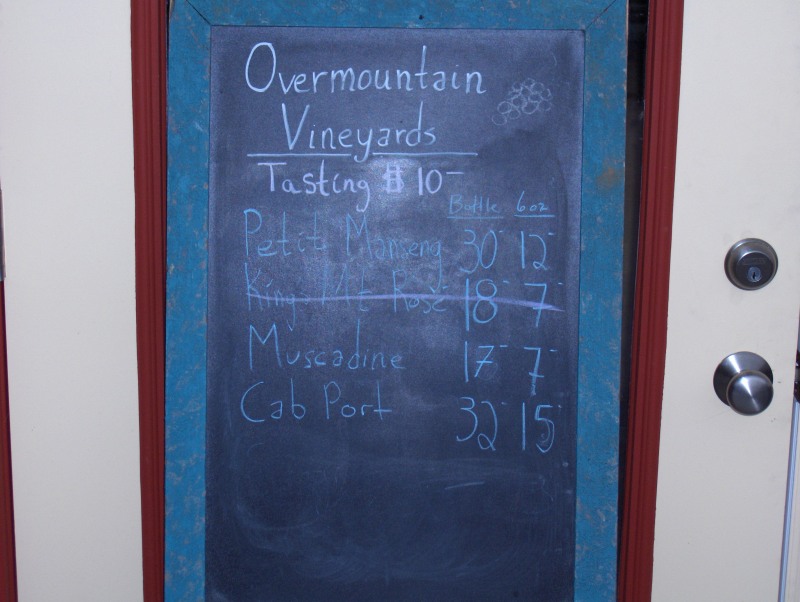 Overmountain
Vineyards
Tasting $10-
Bottle 6oz
Petit Manseng 30- 12-
Kings Mt Rosé 18- 7-
Muscadine 17- 7-
Cab Port 32- 15-